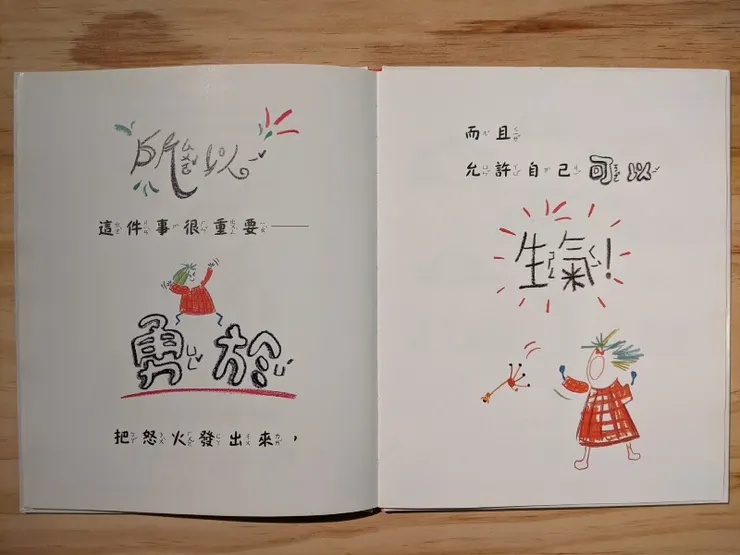 所以
這件事很重要——
勇於
把怒火發出來，
而且
允許自己可以
生氣！